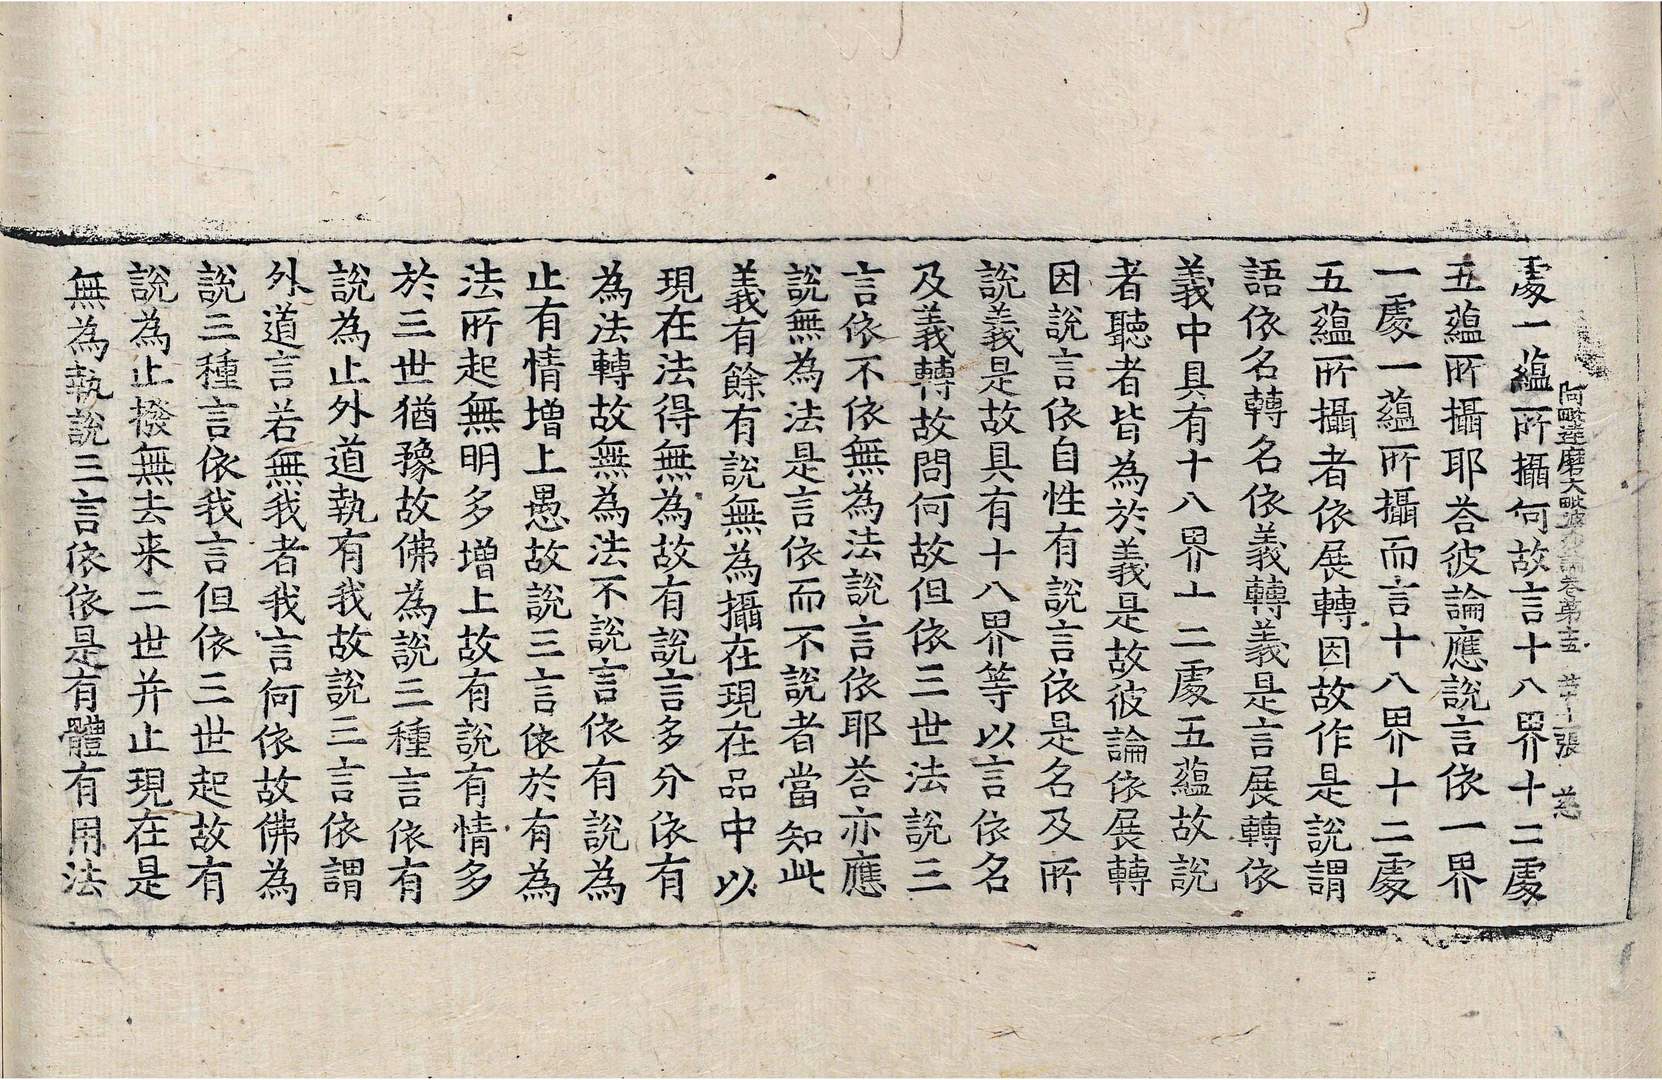 阿毗達磨大毗婆沙論卷第十五 第十二張 慈
處一蘊所攝何故言十八界十二處
五蘊所攝耶荅彼論應說言依一界
一處一蘊所攝而言十八界十二處
五蘊所攝者依展轉因故作是說謂
語依名轉名依義轉義是言展轉依
義中具有十八界十二處五蘊故說
者聽者皆為於義是故彼論依展轉
因說言依自性有說言依是名及所
說義是故具有十八界等以言依名
及義轉故問何故但依三世法說三
言依不依無為法說言依耶荅亦應
說無為法是言依而不說者當知此
義有餘有說無為攝在現在品中以
現在法得無為故有說言多分依有
為法轉故無為法不說言依有說為
止有情增上愚故說三言依於有為
法所起無明多增上故有說有情多
於三世猶豫故佛為說三種言依有
說為止外道執有我故說三言依謂
外道言若無我者我言何依故佛為
說三種言依我言但依三世起故有
說為止撥無去来二世并止現在是
無為執說三言依依是有體有用法